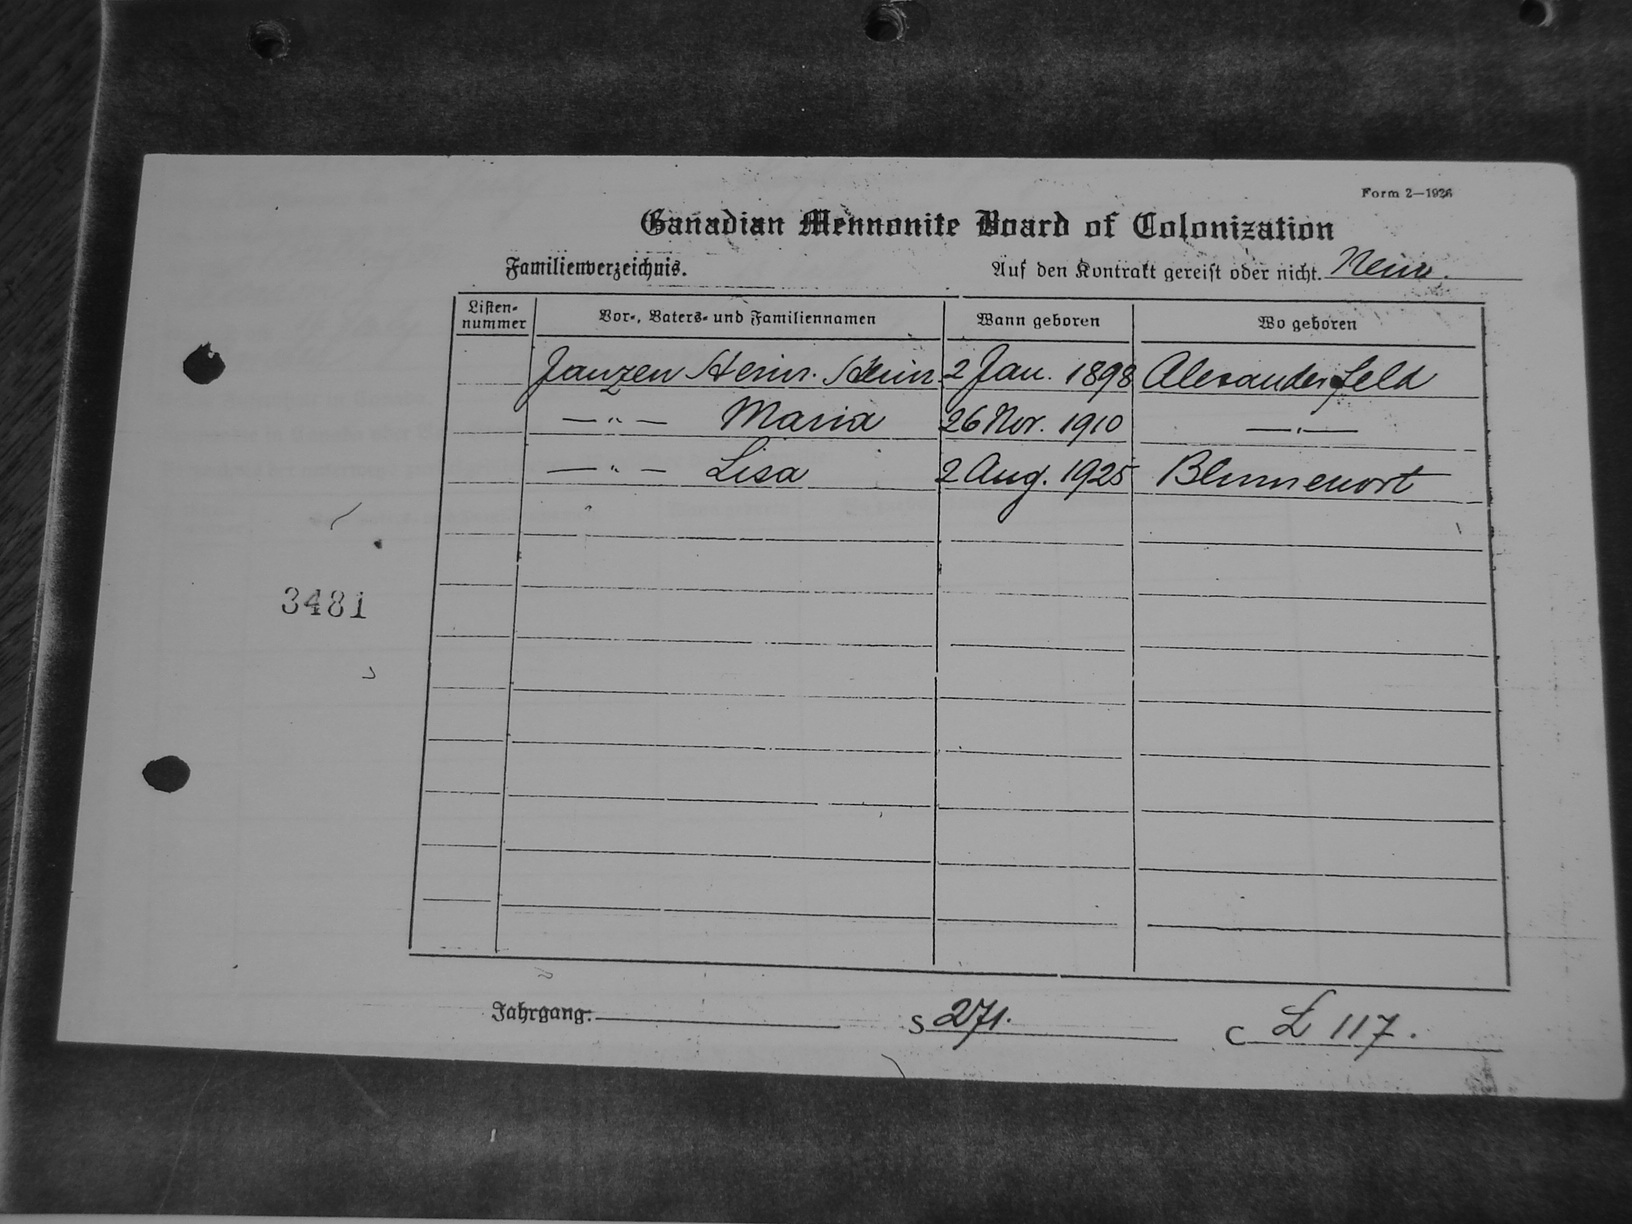 Form 2—1926
Canadian Mennonite Board of Colonization
Familienverzeichnis.
Auf den Kontrakt gereist oder nicht. Nein.
Listen-
nummer
Vor-, Vaters- und Familiennamen
Wann geboren
Wo geboren
Janzen Heinr. Heinr. 2 Jan. 1898 Alexanderfeld
— " — Maria 26 Nov. 1910 — " —
— " — Lisa 2 Aug. 1925 Blumenort
3481
Jahrgang:
S 271.
C L 117.